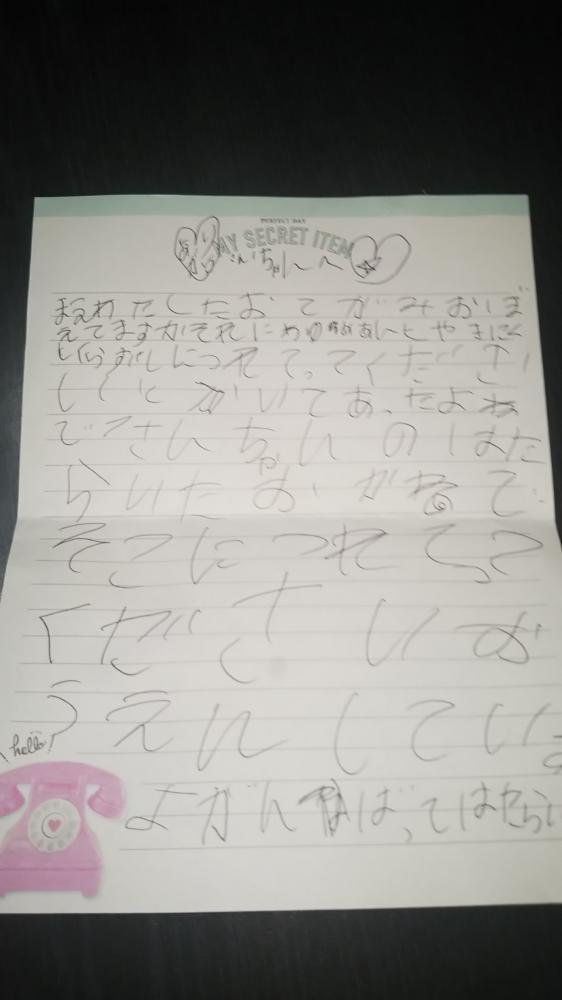 PERFECT DAY
MY SECRET ITEM
ちゃんへ
まえわたしたおてがみおぼ
えてますかそれに
つれてってくださ
いとかいてあったよね
でさんちゃんのはた
らいたおかねで
そこにつれてって
ください お
うえんしているよ
hello!
がんばってはたらい